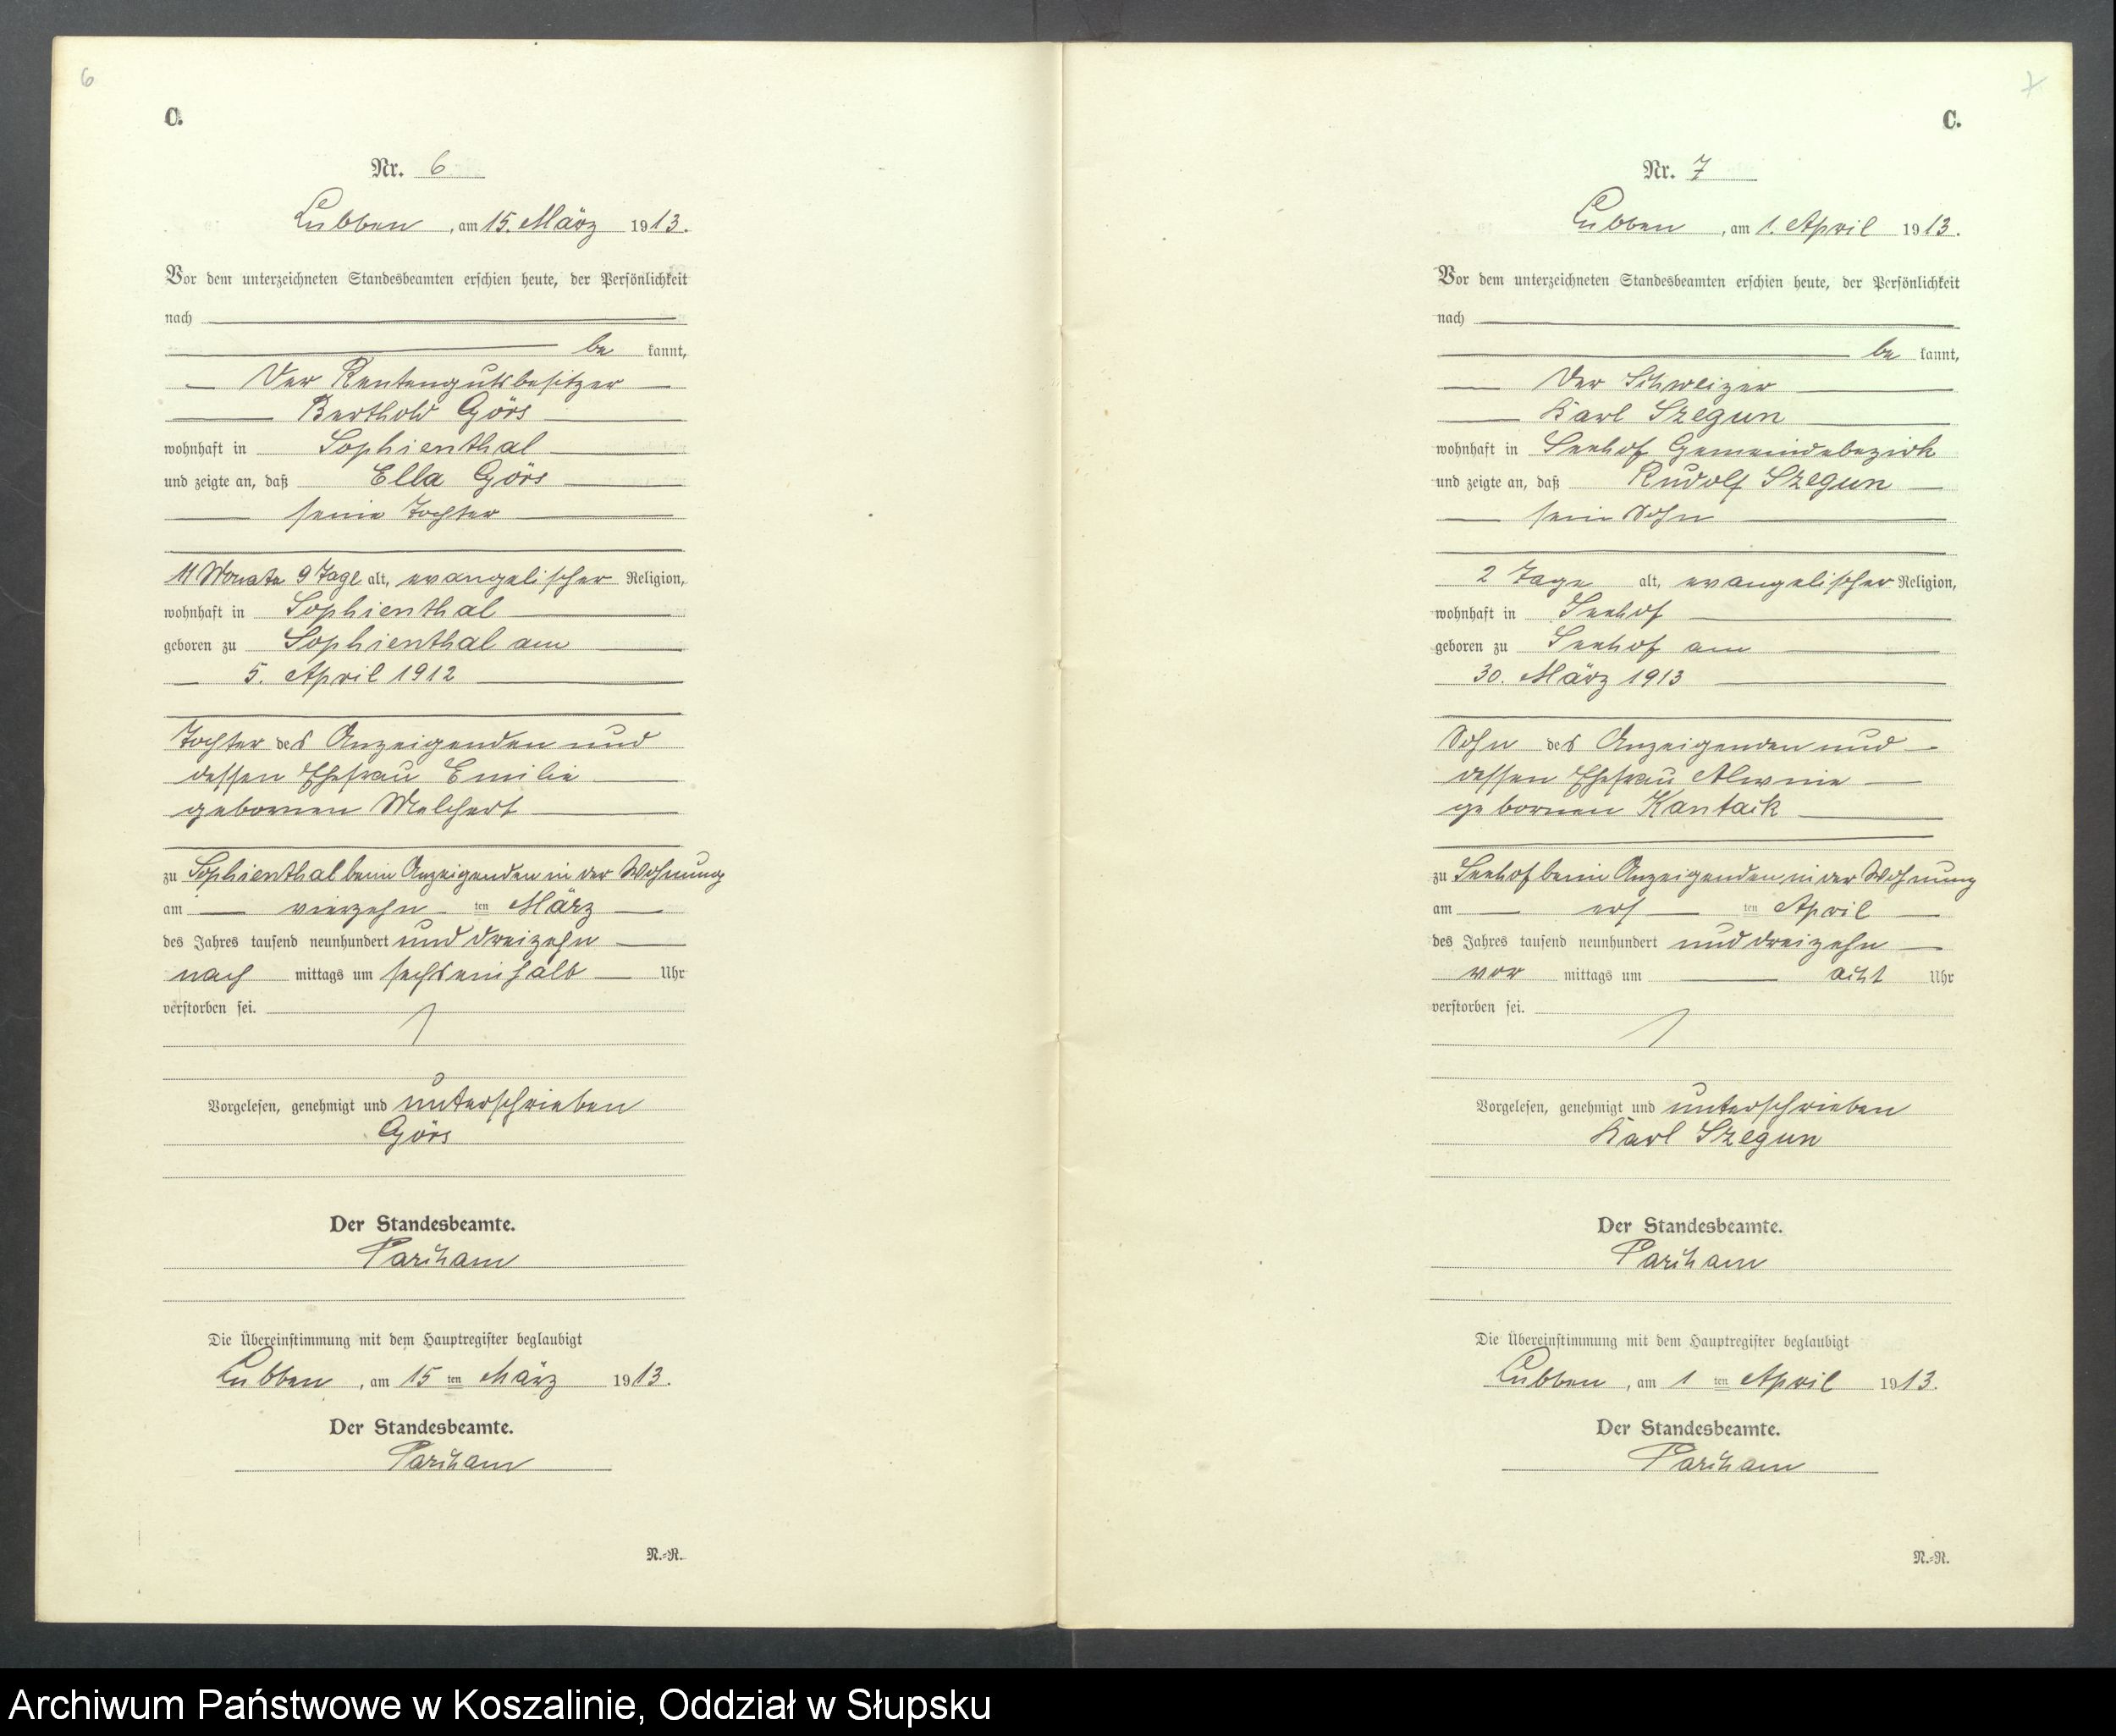 6
C.
Nr. 6
Lubben, am 15. März 1913.
Vor dem unterzeichneten Standesbeamten erschien heute, der Persönlichkeit
nach
be kannt,
Der Rentengutsbesitzer
Berthold Görs
wohnhaft in Sophienthal
und zeigte an, daß Ella Görs
seine Tochter
11 Monate 9 Tage alt, evangelischer Religion,
wohnhaft in Sophienthal
geboren zu Sophienthal am
5. April 1912
Tochter des Anzeigenden und
dessen Ehefrau Emilie
gebornen Melchert
zu Sophienthal beim Anzeigenden in der Wohnung
am vierzehn ten März
des Jahres tausend neunhundert und dreizehn
nach mittags um sechseinhalb Uhr
verstorben sei.
Vorgelesen, genehmigt und unterschrieben
Görs
Der Standesbeamte.
Parcham
Die Übereinstimmung mit dem Hauptregister beglaubigt
Lubben, am 15 ten März 1913.
Der Standesbeamte.
Parcham
N.-R.
7
C.
Nr. 7
Lubben, am 1. April 1913.
Vor dem unterzeichneten Standesbeamten erschien heute, der Persönlichkeit
nach
be kannt,
Der Schweizer
Karl Szegun
wohnhaft in Seehof Gemeindebezirk
und zeigte an, daß Rudolf Szegun
sein Sohn
2 Tage alt, evangelischer Religion,
wohnhaft in Seehof
geboren zu Seehof am
30. März 1913
Sohn des Anzeigenden und
dessen Ehefrau Alwine
gebornen Kantack
zu Seehof beim Anzeigenden in der Wohnung
am ers ten April
des Jahres tausend neunhundert und dreizehn
vor mittags um acht Uhr
verstorben sei.
Vorgelesen, genehmigt und unterschrieben
Karl Szegun
Der Standesbeamte.
Parcham
Die Übereinstimmung mit dem Hauptregister beglaubigt
Lubben, am 1 ten April 1913.
Der Standesbeamte.
Parcham
N.-R.
Archiwum Państwowe w Koszalinie, Oddział w Słupsku